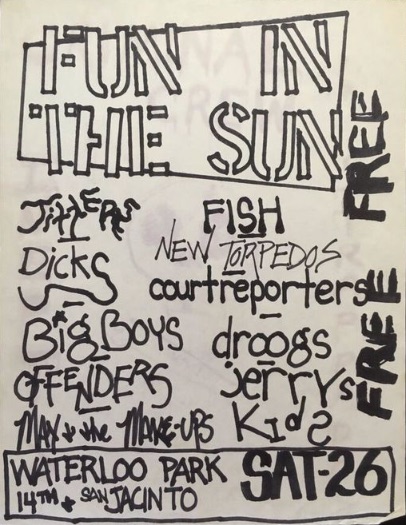 FUN IN
THE SUN
FREE
FREE
Jitters
FISH
Dicks
NEW TORPEDOS
courtreporters
Big Boys
droogs
OFFENDERS
Jerry's
Kids
MAX & the MAKE-UPS
WATERLOO PARK
14TH & SAN JACINTO
SAT-26